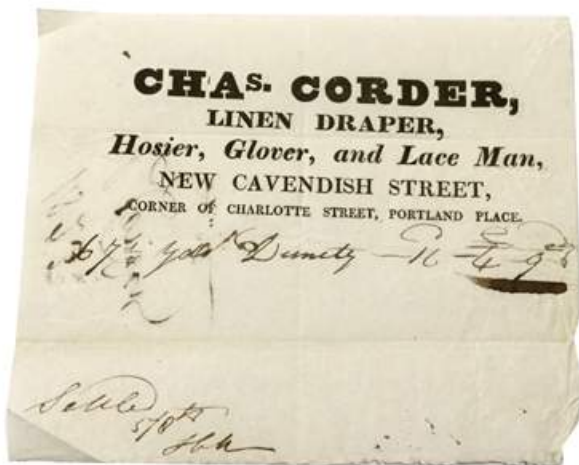 CHAs. CORDER,
LINEN DRAPER,
Hosier, Glover, and Lace Man,
NEW CAVENDISH STREET,
CORNER OF CHARLOTTE STREET, PORTLAND PLACE.
yds Dimity
Settled